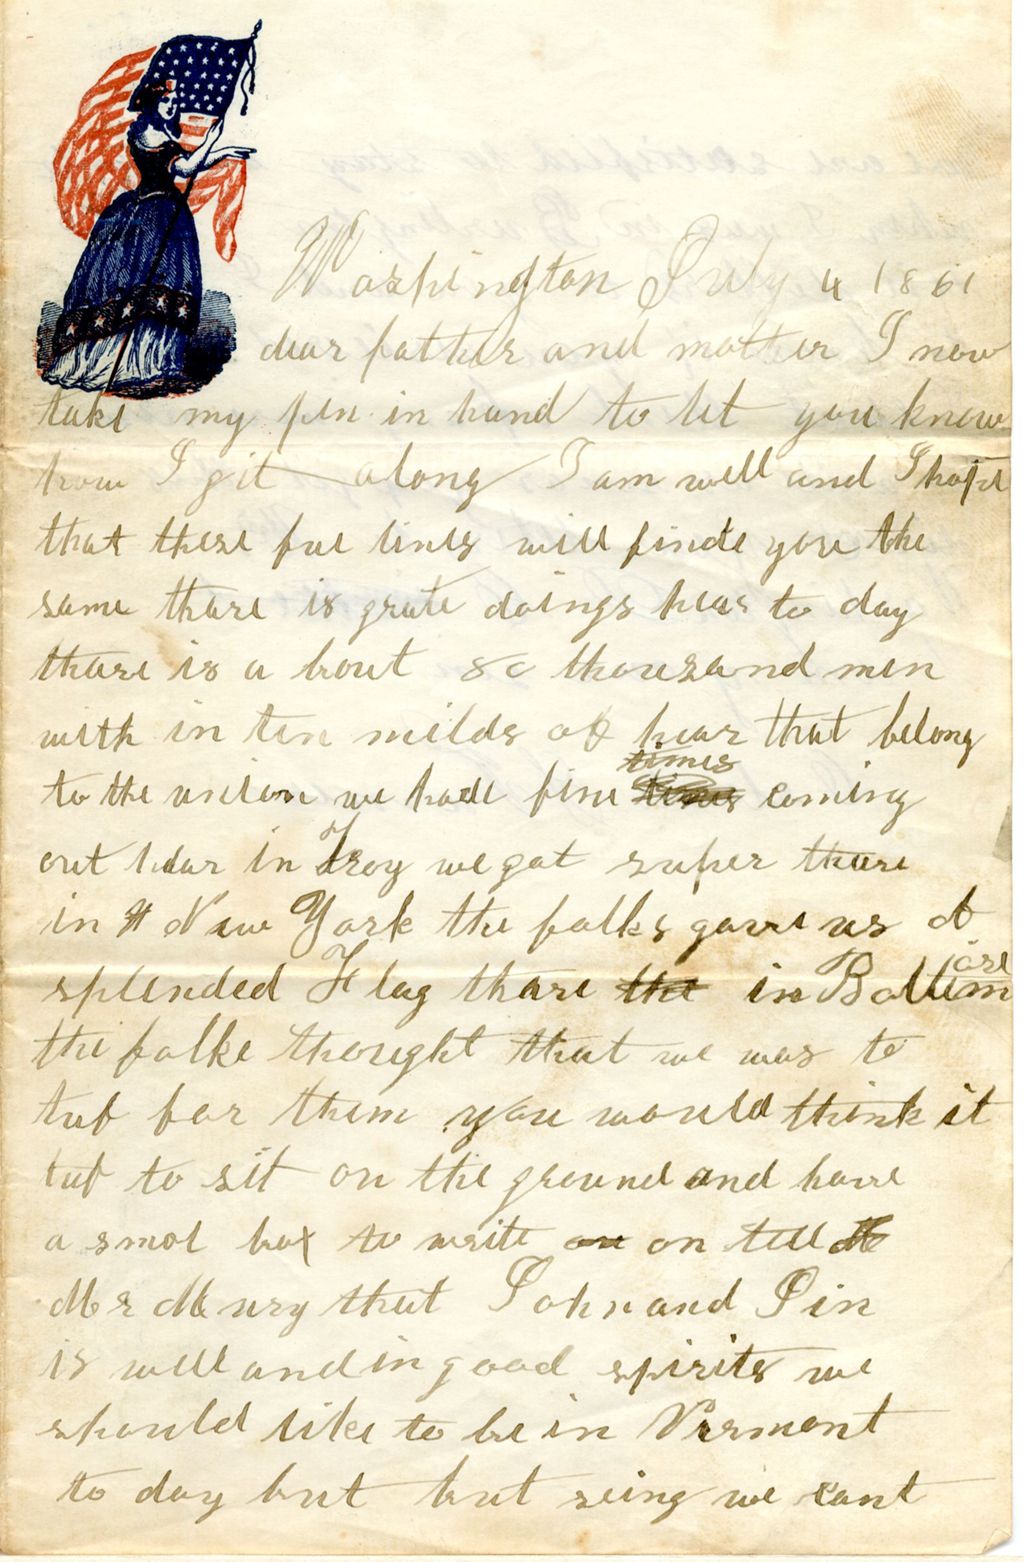 Washington July 4 1861
dear father and mother I now
take my pen in hand to let you know
how I git along I am well and I hope
that these fue lines will finde you the
same thare is grate doings hear to day
thare is a bout 80 thousand men
with in ten milds of hear that belong
to the union we hade fine times coming
out hear in Troy we got super thare
in New York the folks gave us A
splended Flag thare in Baltimore
the folke thought that we was to
tuf for them you would think it
tuf to sit on the ground and have
a smol box to write on tell
Mr Mury that John and Pin
is well and in good spirits we
should like to be in Vermont
to day but but seing we cant